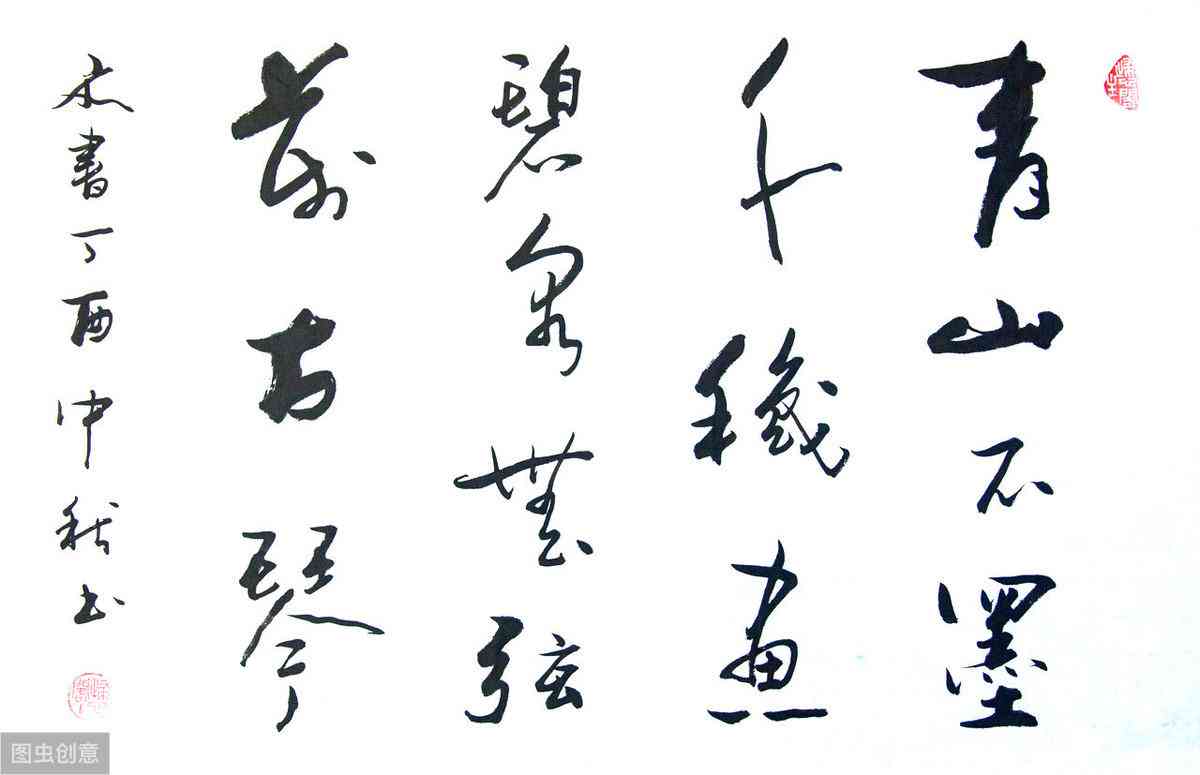 青山不墨
千畫
碧泉無弦
萬古琴
書丁酉中秋书
图虫创意